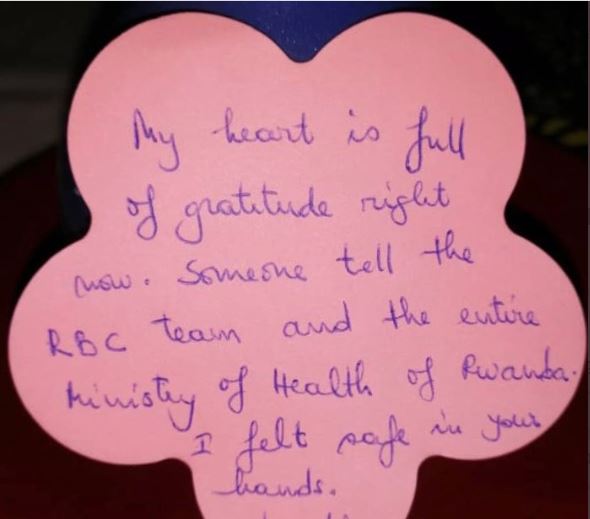 My heart is full
of gratitude right
now. Someone tell the
RBC team and the entire
Ministry of Health of Rwanda.
I felt safe in your
hands.